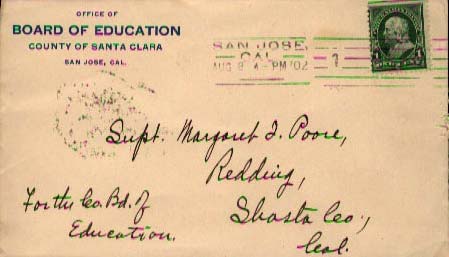 OFFICE OF
BOARD OF EDUCATION
COUNTY OF SANTA CLARA
SAN JOSE, CAL.
SAN JOSE,
CAL.
AUG 8 4-PM '02
1
Supt. Margaret I. Poore,
Redding,
Shasta Co.,
Cal.
For the Co. Bd. of
Education.